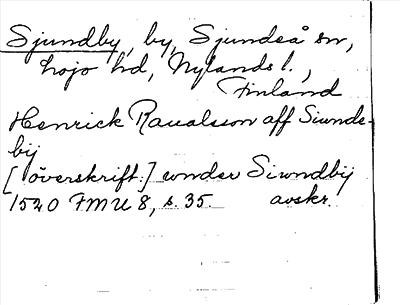 Sjundby, by, Sjundeå sn,
Lojo hd, Nylands l.,
Finland
Henrick Raualsson aff Siunde-
bij
[överskrift:] wnder Siwndbij
1540 FMU 8, s. 35. avskr.